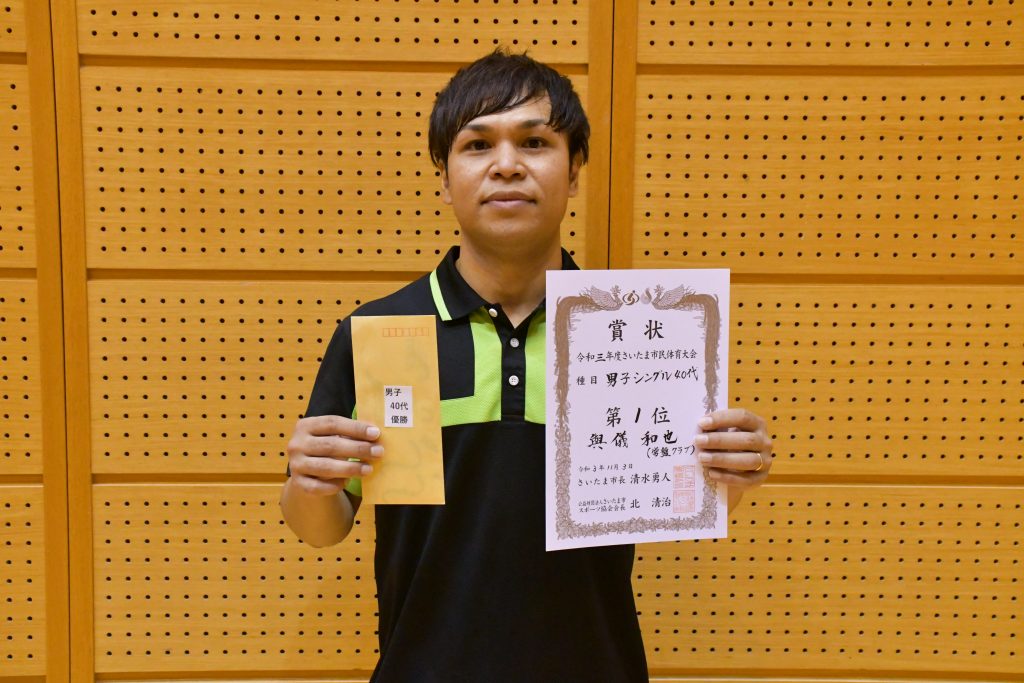 男子
40代
優勝
賞状
令和三年度さいたま市民体育大会
種目 男子シングル40代
第1位
與儀 和也
(常盤クラブ)
令和3年11月3日
さいたま市長 清水勇人
公益財団法人さいたま市
スポーツ協会会長 北 清治